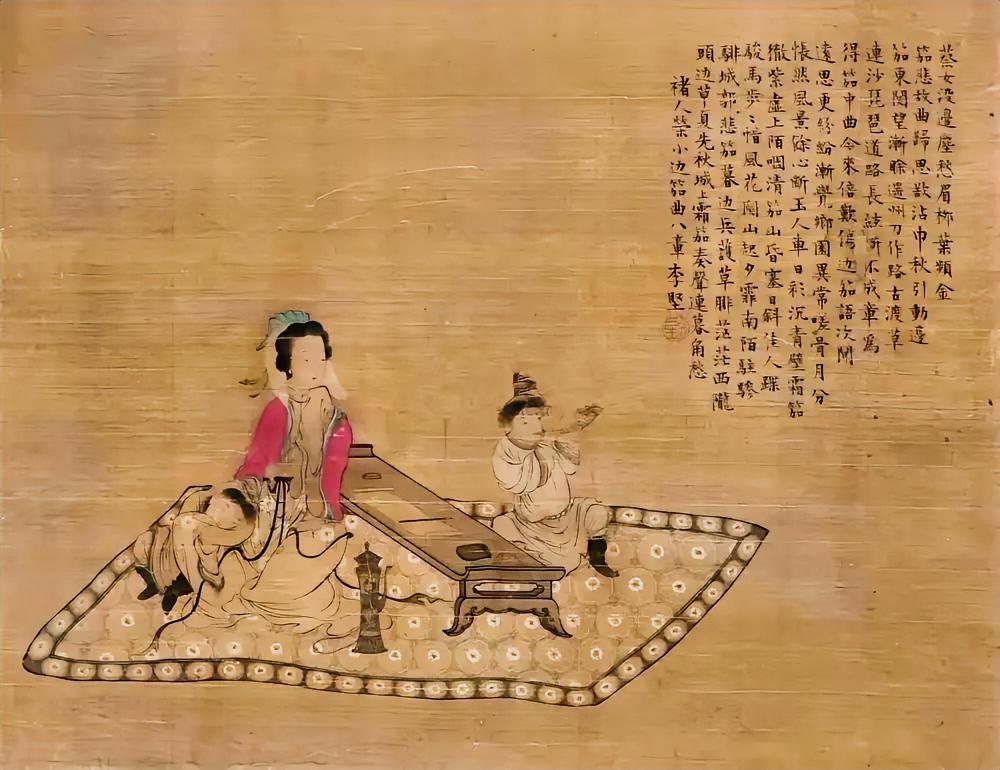 蔡女沒邊塵愁眉柳葉顰金
笳悲故曲歸思欲沾巾秋引動邊
笳東閣望漸賒邊州刀作路古渡草
連沙琵琶道路長絃斷不成章寫
得笳中曲今來倍歎傷边笳語次聞
遠思更紛紛漸覺鄉園異常嗟骨月分
悵然風景餘心斷玉人車日彩沉青壁霜笳
徹紫虛上陌咽清笳山昏塞日斜佳人
駿馬步〻惜風花關山起夕霏南陌駐驂
騑城郭悲笳暮边兵護草腓茫茫西隴
頭边草夏先秋城上霜笳奏聲連暮角愁
褚人榮小边笳曲八章李堅